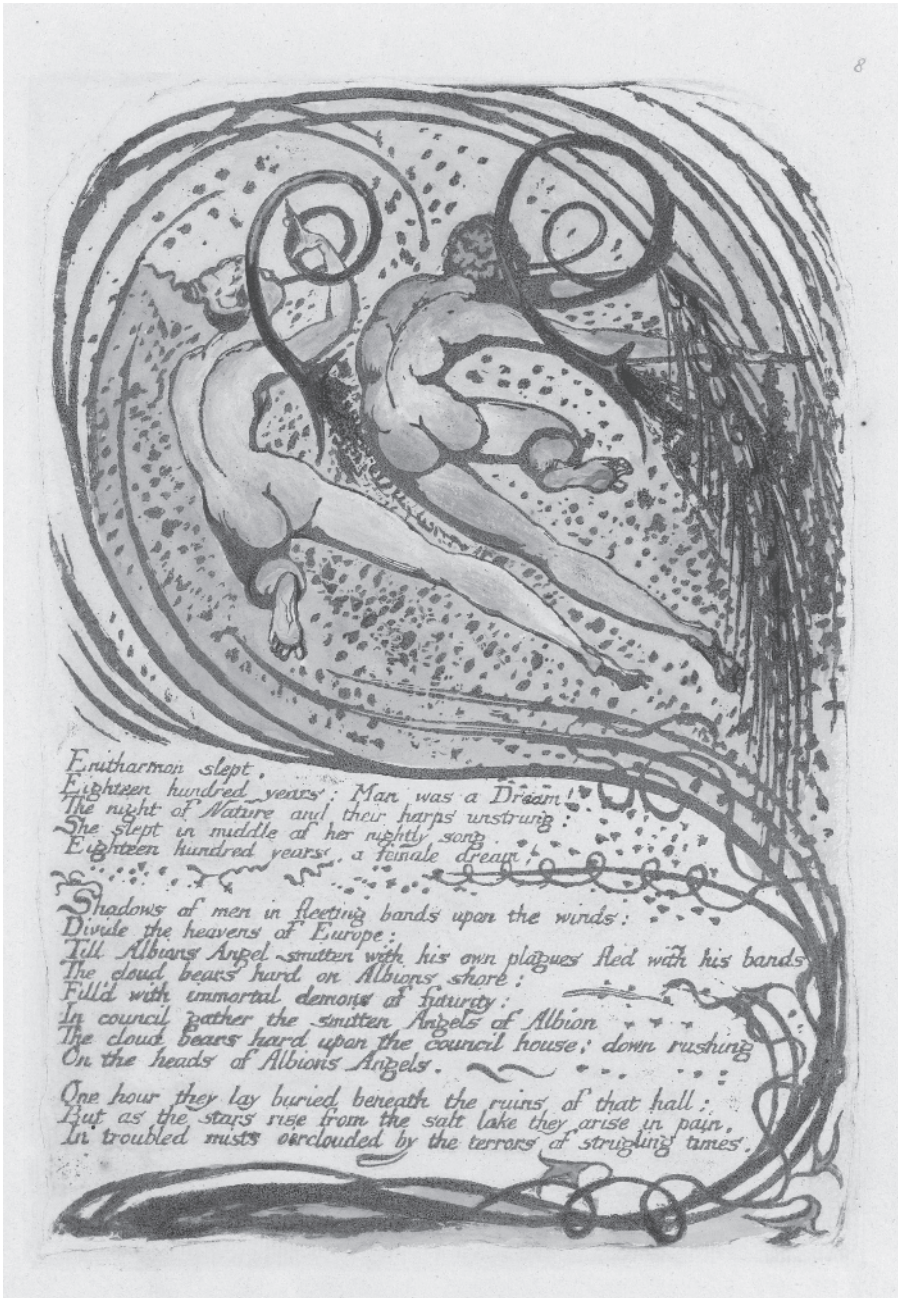 8
Enitharmon slept,
Eighteen hundred years: Man was a Dream!
The night of Nature and their harps unstrung:
She slept in middle of her nightly song,
Eighteen hundred years, a female dream!
Shadows of men in fleeting bands upon the winds:
Divide the heavens of Europe:
Till Albions Angel smitten with his own plagues fled with his bands
The cloud bears hard on Albions shore:
Fill'd with immortal demons of futurity:
In council gather the smitten Angels of Albion
The cloud bears hard upon the council house; down rushing
On the heads of Albions Angels.
One hour they lay buried beneath the ruins of that hall;
But as the stars rise from the salt lake they arise in pain,
In troubled mists o'erclouded by the terrors of strugling times.